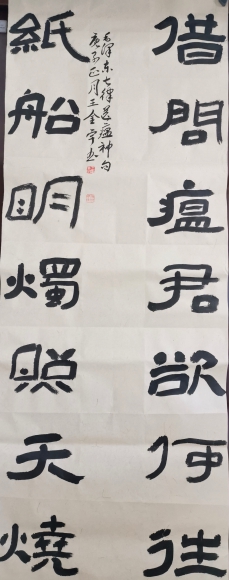 借問瘟君欲何往
紙船明燭照天燒
毛澤東七律送瘟神句
庚子正月王金宇书